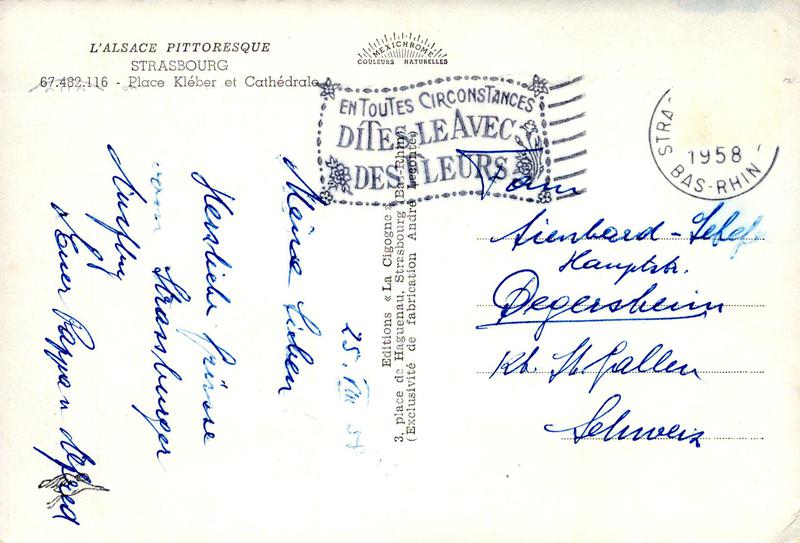 L'ALSACE PITTORESQUE
STRASBOURG
67.482.116 - Place Kléber et Cathédrale
MEXICHROME
COULEURS NATURELLES
EN TOUTES CIRCONSTANCES
DITES-LE AVEC
DES FLEURS
1958
BAS-RHIN
25. VIII 58
Meine Lieben
Herzliche Grüsse
vom Strassburger
Ausflug
Euer Pappa Alfred
Editions « La Cigogne »
3, place de Haguenau, Strasbourg (Bas-Rhin)
(Exclusivité de fabrication André Leconte)
Fam
Hauptstr.
Degersheim
Kt. St Gallen
Schweiz